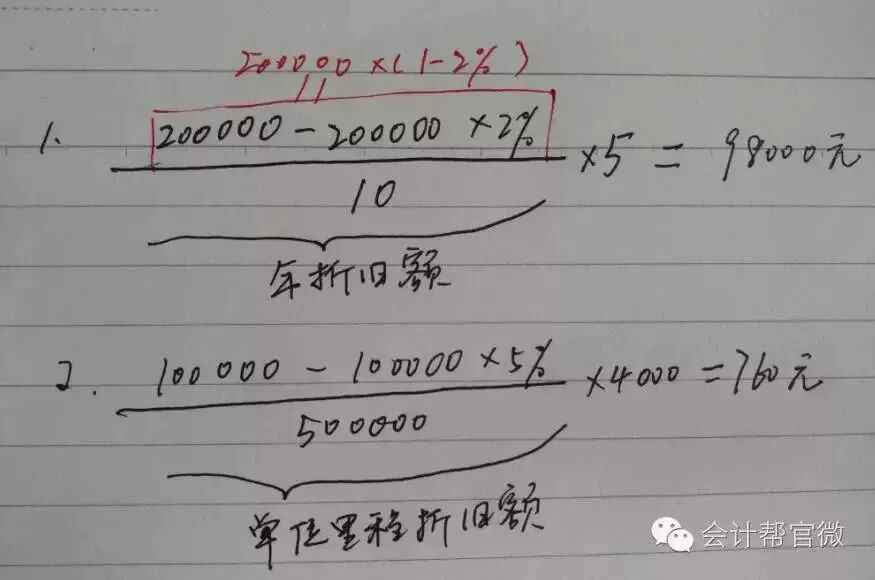 200000×(1-2%)
1. 200000-200000×2%
10
×5=98000元
年折旧额
2. 100000-100000×5%
500000
×4000=760元
单位里程折旧额
会计帮官微